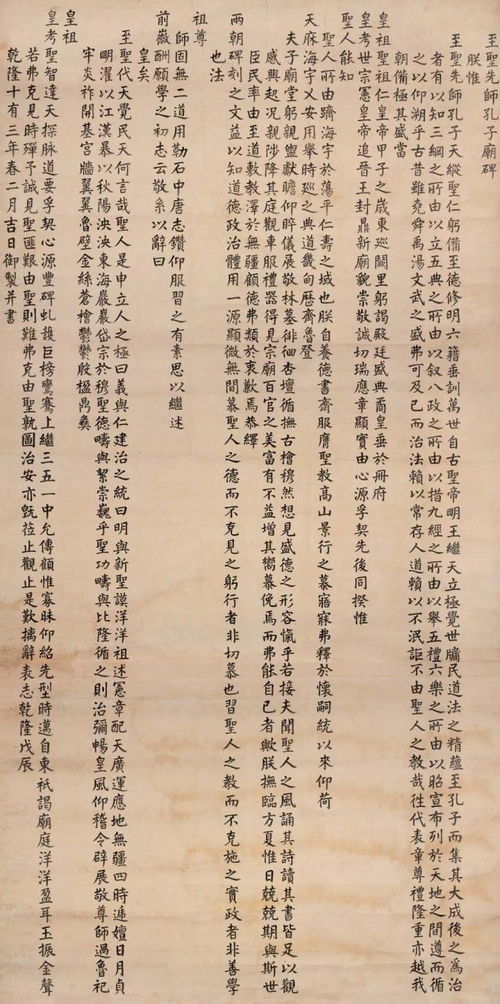 至聖先師孔子廟碑
朕惟
至聖先師孔子天縱聖仁躬備至德修明六籍垂訓萬世自古聖帝明王繼天立極覺世牖民道法之精蘊至孔子而集其大成後之為治
者有以知三綱之所由以立五典之所由以叙八政之所由以措九經之所由以舉五禮六樂之所由以昭宣布列於天地之間遵而循
之以仰朔乎古昔雖堯舜禹湯文武之盛弗可及已而治法賴以常存人道賴以不泯詎不由聖人之教哉徃代表章尊禮隆重亦越我
朝備極其盛當
皇祖聖祖仁皇帝甲子之歲東廵闕里躬謁殿廷盛典喬皇垂於冊府
皇考世宗憲皇帝追晉王封鼎新廟貌崇敬誠切瑞應章顯實由心源孚契先後同揆惟
聖人能知
聖人所由躋海宇於蕩平仁壽之域也朕自養德書齋服膺聖教髙山景行之慕寤寐弗釋於懷嗣統以來仰荷
天庥海宇乂安用舉時廵之典道畿甸歷齊魯登
夫子廟堂躬親盥獻瞻仰睟儀展敬林墓徘徊杏壇循撫古檜穆然想見盛德之形容愾乎若接夫聞聖人之風誦其詩讀其書皆足以觀
感興起況親陟降其庭觀車服禮器得見宗廟百官之美富有不益增其嚮慕俛焉而弗能自已者歟朕撫臨方夏惟日兢兢期與斯世
臣民率由至道敷教澤於無疆顧德弗類於衷歉焉恭繹
兩朝碑刻之文益以知道德政治體用一源顯微無間慕聖人之德而不克見之躬行者非切慕也習聖人之教而不克施之實政者非善學
也法
祖尊
師固無二道用勒石中唐志鑽仰服習之有素思以繼述
前徽酬願學之初志云敬系以辭曰
皇矣
至聖代天覺民天何言哉聖人是申立人之極曰義與仁建治之統曰明與新聖謨洋洋祖述憲章配天廣運應地無疆四時遞嬗日月貞
明濯以江漢暴以秋陽泱泱東海巖巖岱宗於穆聖德疇與絜崇巍乎聖功疇與比隆循之則治彌暢皇風仰稽令辟展敬尊師過魯祀
牢炎祚開基宫牆翼翼魯壁金絲蒼檜鬱鬱殷楹鼎彝
皇祖
皇考聖智達天探脉道要孚契心源豐碑虬護巨榜鸞騫上繼三五一中允傳顧惟寡昧仰紹先型時邁自東祇謁廟庭洋洋盈耳玉振金聲
若弗克見時殫予誠見聖匪艱由聖則難弗克由聖孰圖治安亦旣莅止觀止是歎摛辭表志乾隆戊辰
乾隆十有三年春二月吉日御製并書